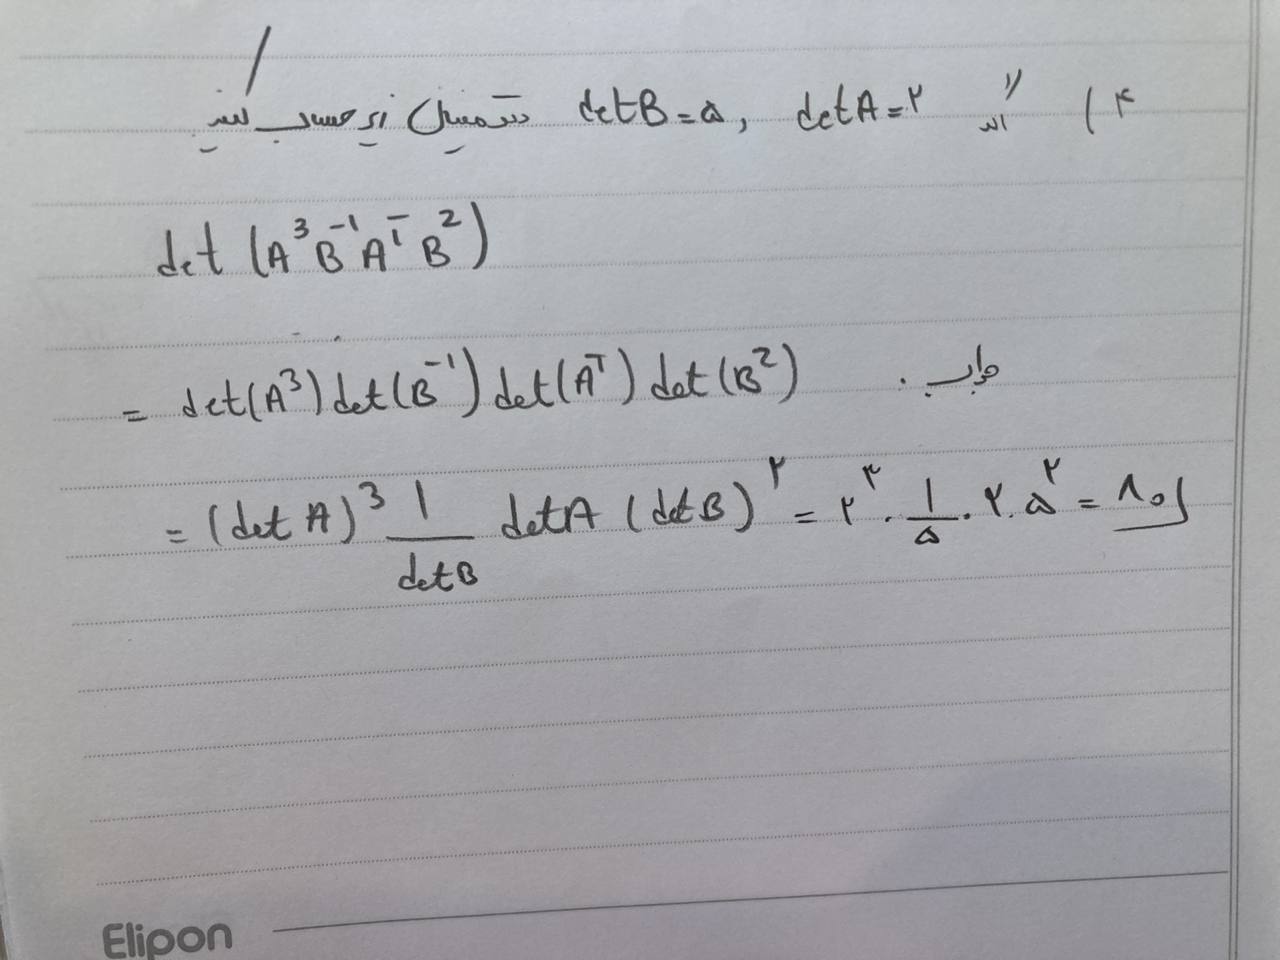 ۴) اگر detA=۲ , detB=۵ دترمینان زیر حساب کنید
det (A³B⁻¹AᵀB²)
جواب.
= det(A³)det(B⁻¹)det(Aᵀ)det(B²)
= (det A)³ 1/detB detA (detB)² = ۲³ . 1/۵ . ۲ . ۵² = ۸۰
Elipon